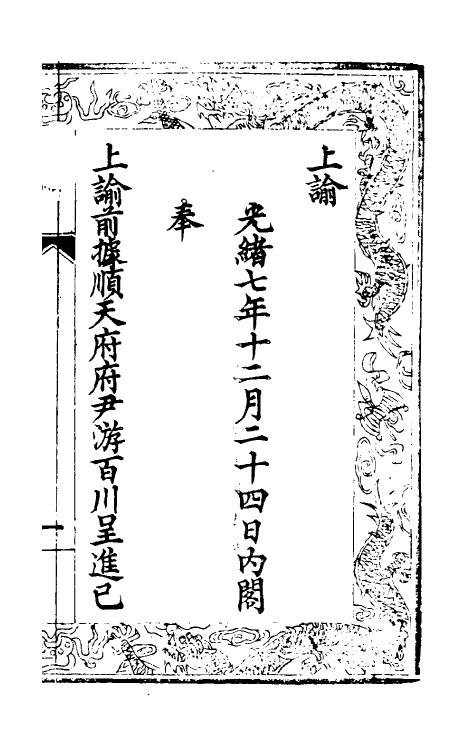 上諭
光緒七年十二月二十四日內閣
奉
上諭前據順天府府尹游百川呈進已